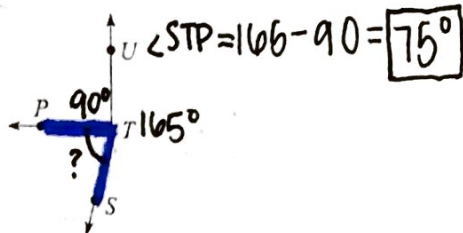 U <STP=165-90= 75°
P 90°
T 165°
?
S